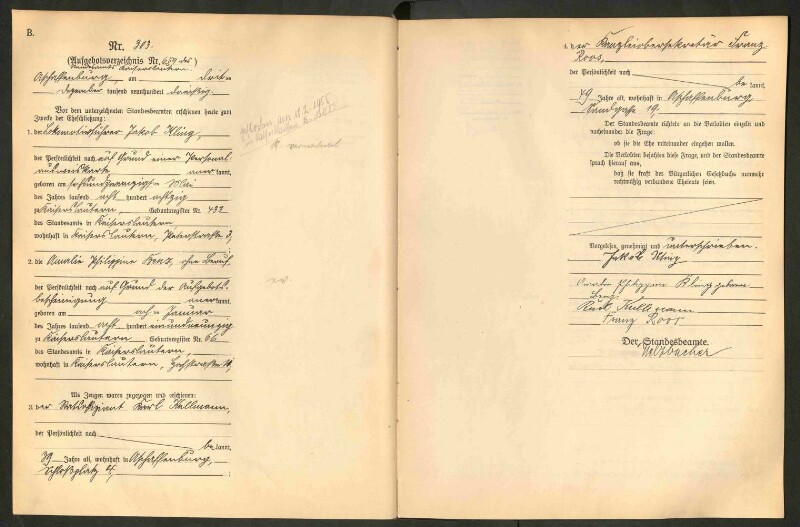 B.
Nr. 303.
(Aufgebotsverzeichnis Nr. 659 des)
Standesamts Kaiserslautern
Aschaffenburg am drei-
Dezember tausend neunhundert dreißig.
Vor dem unterzeichneten Standesbeamten erschienen heute zum
Zwecke der Eheschließung:
1. der Lokomotivführer Jakob Kling,
der Persönlichkeit nach auf Grund einer Personal-
ausweiskarte anerkannt,
geboren am sechsundzwanzigsten Mai
des Jahres tausend acht hundert achtzig
zu Kaiserslautern, Geburtsregister Nr. 432
des Standesamts in Kaiserslautern
wohnhaft in Kaiserslautern, Pfaffstraße 3,
2. die Amalie Philippine Benz, ohne Beruf
der Persönlichkeit nach auf Grund der Aufgebots-
bescheinigung anerkannt,
geboren am achten Januar
des Jahres tausend acht hundert einundneunzig
zu Kaiserslautern Geburtsregister Nr. 66
des Standesamts in Kaiserslautern,
wohnhaft in Kaiserslautern,
Als Zeugen waren zugezogen und erschienen:
3. der Karl Kullmann,
der Persönlichkeit nach
bekannt,
39 Jahre alt, wohnhaft in Aschaffenburg,
Schloßplatz 4,
4. der Kanzleiobersekretär Franz
Roos,
der Persönlichkeit nach
bekannt,
49 Jahre alt, wohnhaft in Aschaffenburg
Sandgasse 19,
Der Standesbeamte richtete an die Verlobten einzeln und
nacheinander die Frage:
ob sie die Ehe miteinander eingehen wollen.
Die Verlobten bejahten diese Frage, und der Standesbeamte
sprach hierauf aus,
daß sie kraft des Bürgerlichen Gesetzbuchs nunmehr
rechtmäßig verbundene Eheleute seien.
Vorgelesen, genehmigt und unterschrieben.
Jakob Kling
Amalie Philippine Kling geborene
Benz
Karl Kullmann
Franz Roos
Der Standesbeamte.